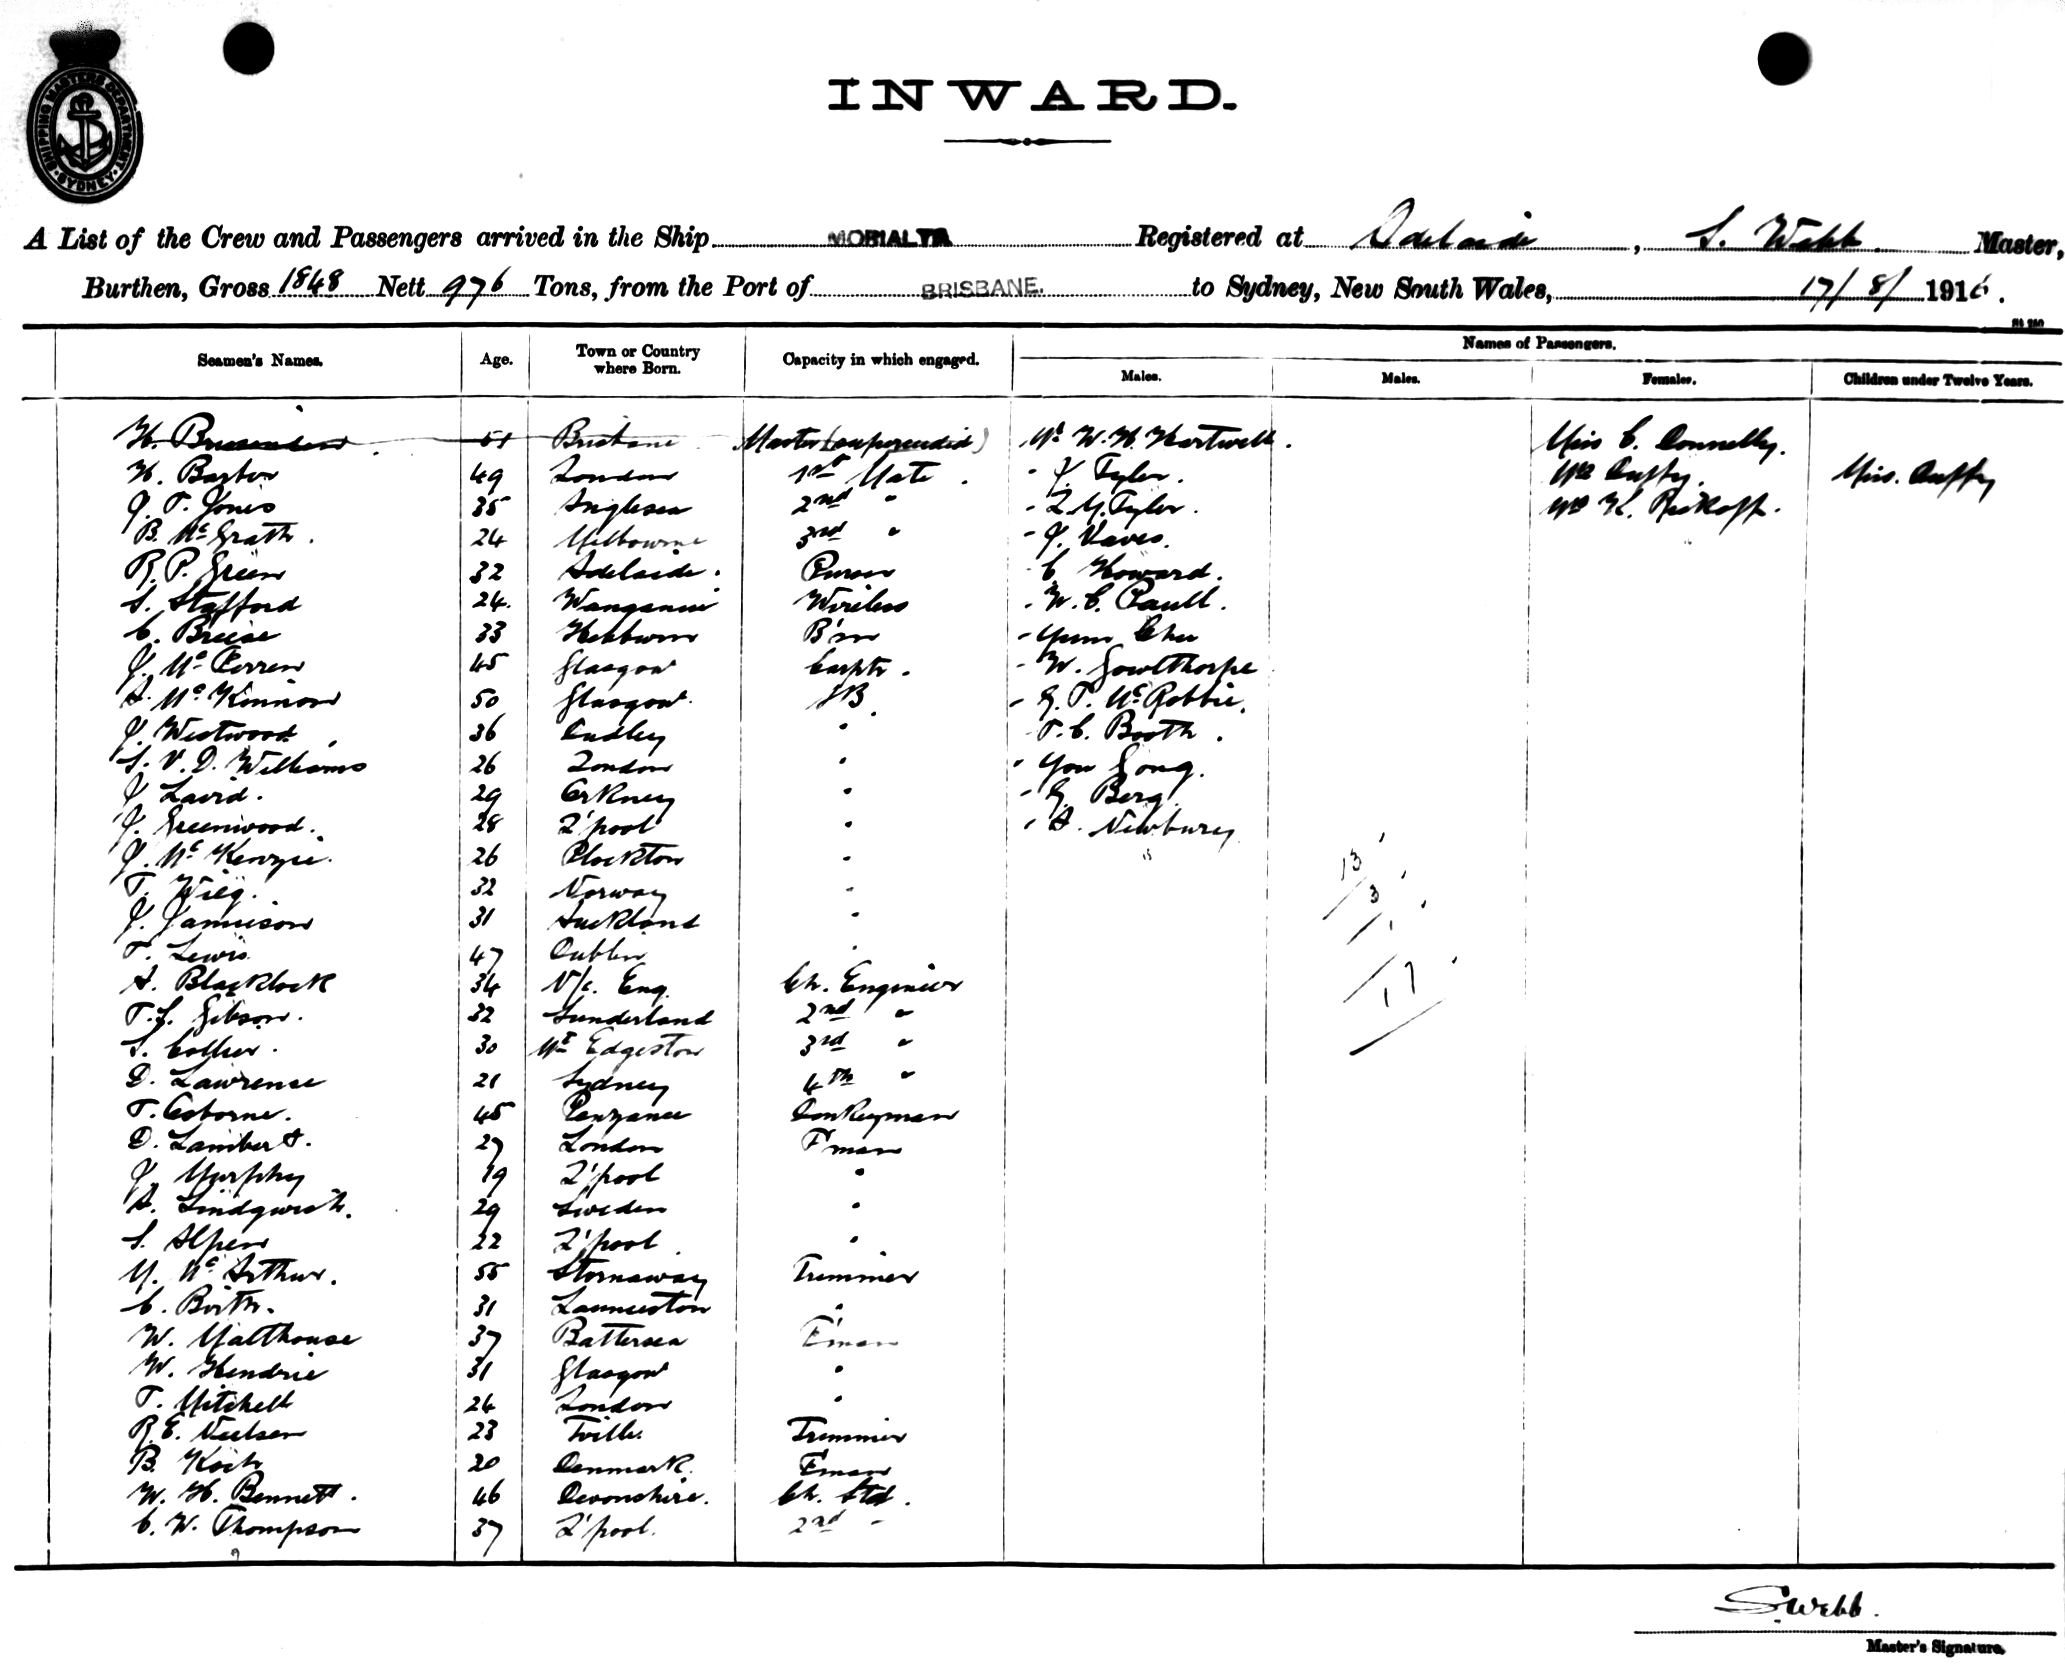 SHIPPING MASTERS DEPARTMENT · SYDNEY ·
INWARD.
A List of the Crew and Passengers arrived in the Ship MORIALTA Registered at Adelaide, S. Webb. Master,
Burthen, Gross 1848 Nett 976 Tons, from the Port of BRISBANE. to Sydney, New South Wales, 17/8/1916.
Names of Passengers.
Seamen's Names. Age. Town or Country where Born. Capacity in which engaged. Males. Males. Females. Children under Twelve Years.
H. 51 Brisbane Master (superceeded) Mr W. H. Hartwell. Miss C. Connelly.
H. Barber 49 London 1st Mate. - J. Tyler. Mrs Duffy. Miss. Duffy
J. T. Jones 35 Anglesea 2nd " - L. M. Tyler. Mrs K.
B. McGrath. 24 Melbourne 3rd " - J. Vaves.
R. P. Green 32 Adelaide. Purser C. Howard.
S. Stafford 24. Wanganui Wireless - W. C. Paull.
C. Breese 33 Hebburn B'sn - Yum Chu
J. McPerren 45 Glasgow Carptr. - W. Gowlthorpe
A. McKinnon 50 Glasgow. AB. - G. P. McRobbie.
J. Westwood. 36 Dudley " - T. C. Booth.
S. V. D. Williams 26 London " - You Gong.
J. Laird. 29 Orkney " - G. Berg.
J. Greenwood. 28 L'pool " - A. Newbury
J. McKenzie. 26 Plockton " 13
T. Wieg. 32 Norway " 3
J. Jamieson 31 Auckland " 1
T. Lewis 47 Dublin " 17
A. Blacklock 34 N/c. Eng. Ch. Engineer
T. S. Gibson. 32 Sunderland 2nd "
S. Collier. 30 Mt Edgeston 3rd "
D. Lawrense 21 Sydney 4th "
T. Osborne. 45 Penzance Donkeyman
D. Lambert. 27 London F'man
J. Murphy 19 L'pool "
A. Lindqwist. 29 Sweden "
S. Alpen 22 L'pool. "
M. McArthur. 55 Stornaway Trimmer
C. Birth. 31 Launceston "
W. Malthouse 37 Battersea F'man
W. Hendrie 31 Glasgow "
T. Mitchell 24 London "
R. E. Neilsen 23 T'ville. Trimmer
B. Koch 20 Denmark. F'man
W. H. Bennett. 46 Devonshire. Ch. Std.
C. W. Thompson 37 L'pool. 2nd "
S. Webb.
Master's Signature.